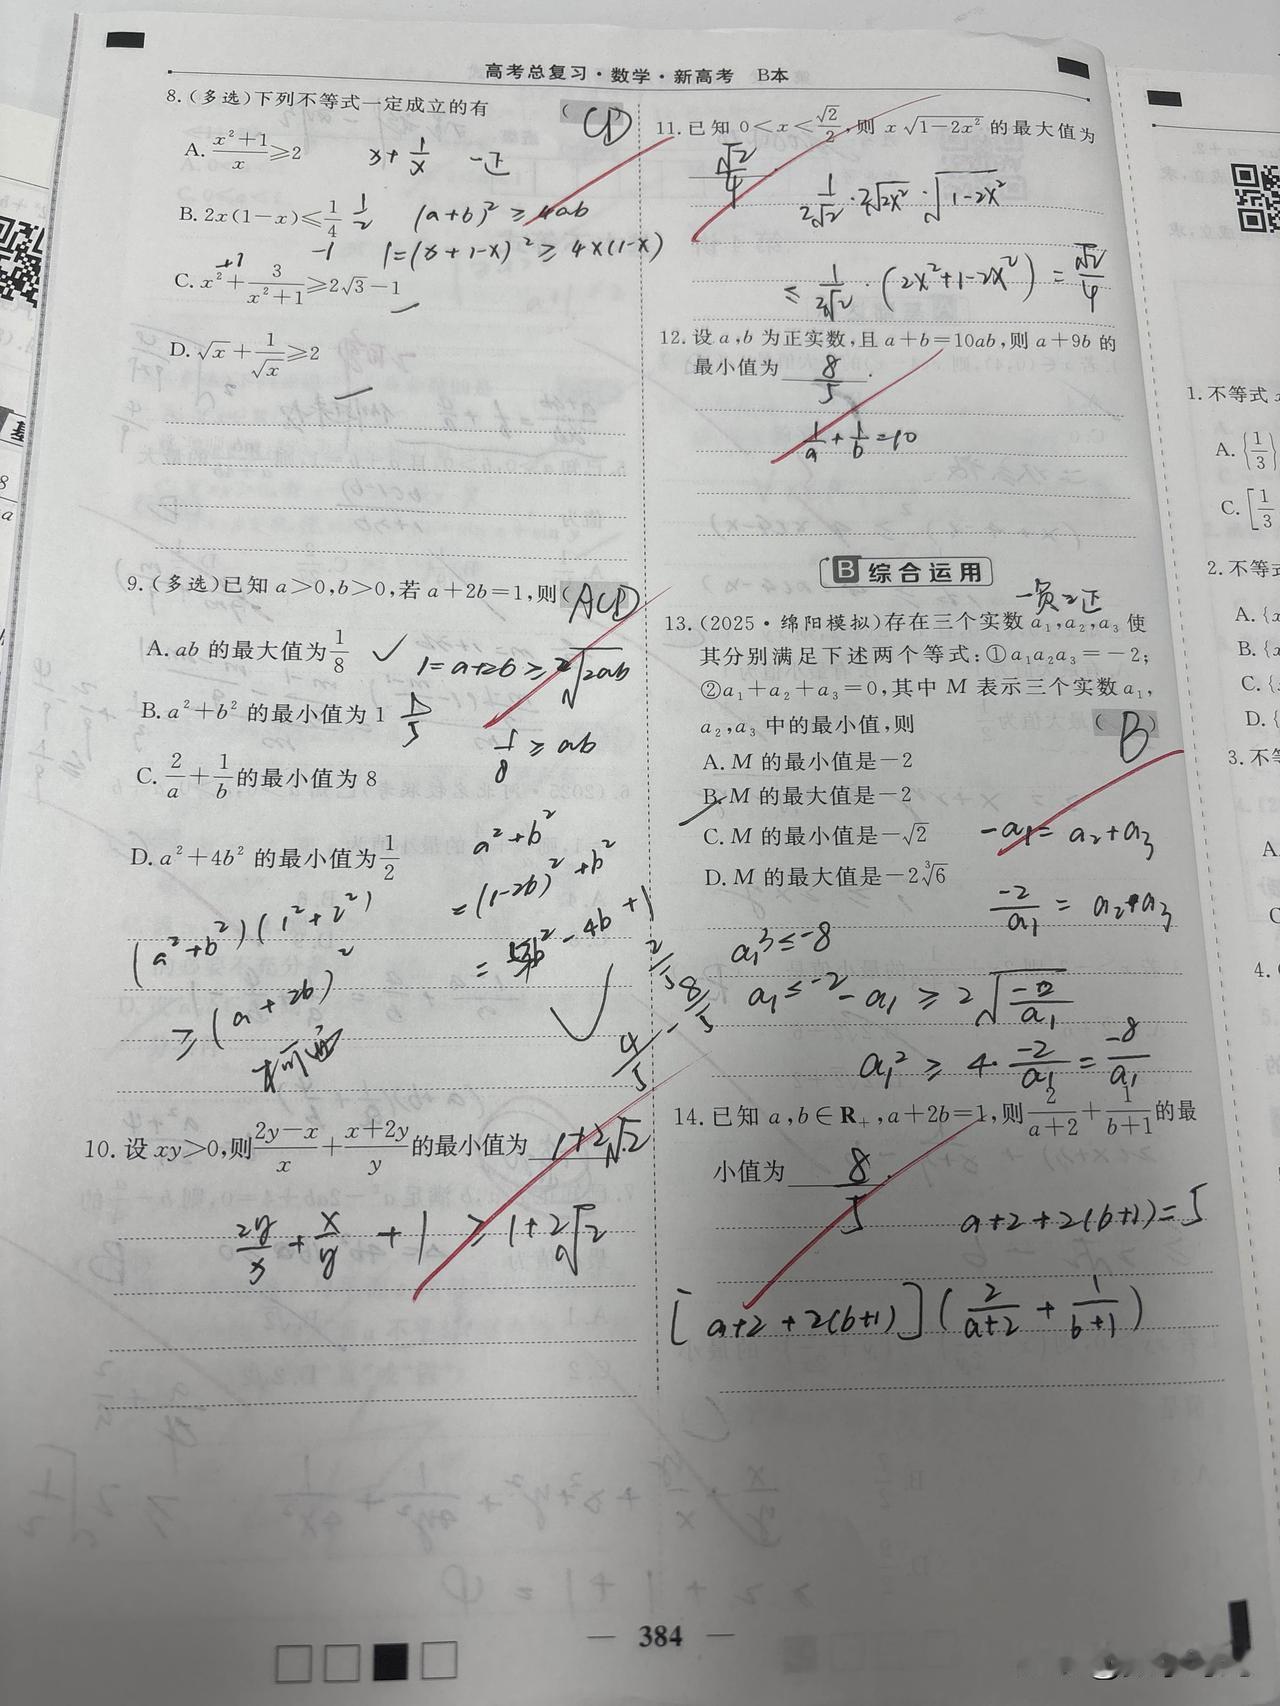 高考总复习·数学·新高考 B本
8.(多选)下列不等式一定成立的有 ( CD )
A. \frac{x²+1}{x}≥2
x+\frac{1}{x} 一正
B. 2x(1-x)≤\frac{1}{4} \frac{1}{2}
(a+b)²≥4ab
1=(x+1-x)²≥4x(1-x)
+1 -1
C. x²+\frac{3}{x²+1}≥2√3-1
D. √x+\frac{1}{√x}≥2
9.(多选)已知a>0,b>0,若a+2b=1,则( ACD )
A. ab的最大值为\frac{1}{8} ✓
1=a+2b≥2√2ab
B. a²+b²的最小值为1 \frac{1}{5}
\frac{1}{8}≥ab
C. \frac{2}{a}+\frac{1}{b}的最小值为8
D. a²+4b²的最小值为\frac{1}{2}
a²+b²
=(1-2b)²+b²
=5b²-4b+1
(a²+b²)(1²+2²)
≥(a+2b)²
柯西
\frac{4}{5}-\frac{8}{5}
10. 设xy>0,则\frac{2y-x}{x}+\frac{x+2y}{y}的最小值为 1+2√2
\frac{2y}{x}+\frac{x}{y}+1≥1+2√2
11. 已知0<x<\frac{√2}{2},则x√1-2x²的最大值为
\frac{√2}{4}.
\frac{1}{2√2}·2√2x²·√1-2x²
≤\frac{1}{2√2}·(2x²+1-2x²)=\frac{√2}{4}
12. 设a,b为正实数,且a+b=10ab,则a+9b的
最小值为 \frac{8}{5}.
\frac{1}{a}+\frac{1}{b}=10
B 综合运用
一负2正
13.(2025·绵阳模拟)存在三个实数a₁,a₂,a₃使
其分别满足下述两个等式:①a₁a₂a₃=-2;
②a₁+a₂+a₃=0,其中M表示三个实数a₁,
a₂,a₃中的最小值,则 ( B )
A. M的最小值是-2
B. M的最大值是-2
C. M的最小值是-√2
D. M的最大值是-2∛6
-a₁=a₂+a₃
\frac{-2}{a₁}=a₂·a₃
a₁³≤-8
a₁≤-2
-a₁≥2√\frac{-2}{a₁}
a₁²≥4·\frac{-2}{a₁}=\frac{-8}{a₁}
14. 已知a,b∈R₊,a+2b=1,则\frac{2}{a+2}+\frac{1}{b+1}的最
小值为 \frac{8}{5}.
a+2+2(b+1)=5
[a+2+2(b+1)](\frac{2}{a+2}+\frac{1}{b+1})
— 384 —
1.不等式
A.{\frac{1}{3}}
C.[\frac{1}{3}
2.不等式
A.{x
B.{x
C.{
D.{
3.不等
A.
C
4.